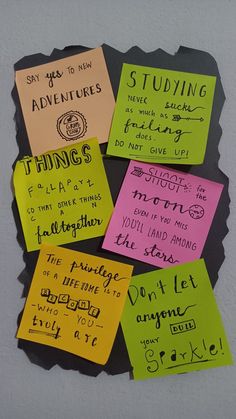 SAY yes TO NEW
ADVENTURES
STUDYING
NEVER sucks
as much as
failing
does
DO NOT GIVE UP!
THINGS
FALL APART
SO THAT OTHER THINGS
CAN
fall together
SHOOT for the
moon
EVEN IF YOU MISS
YOU'LL LAND AMONG
the stars
The privilege
OF A LIFETIME IS TO
BECOME
WHO YOU
truly are
Don't Let
anyone
DULL
your
Sparkle!